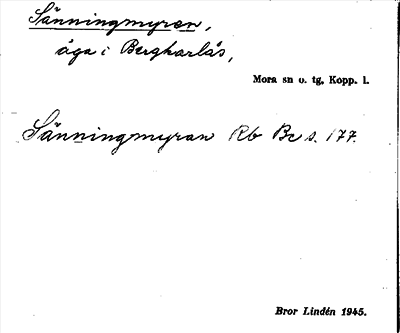 Sänningmyran,
äga i Bergkarlås,
Mora sn o. tg, Kopp. l.
Sänningmyran Rb Bc s. 177.
Bror Lindén 1945.